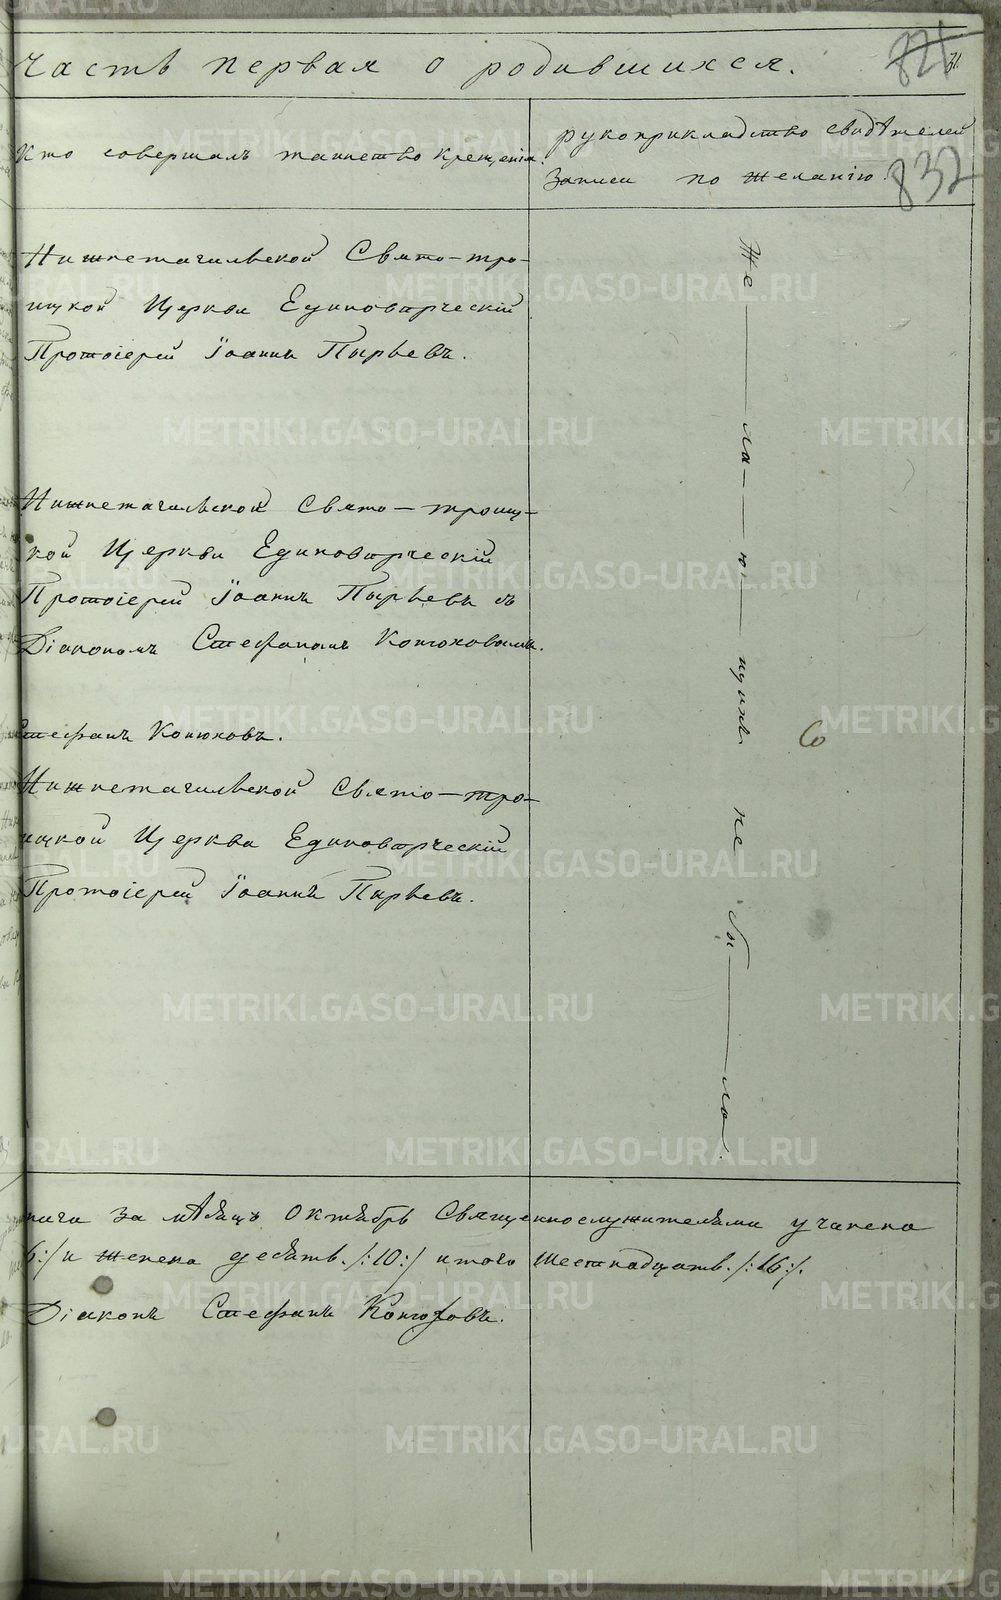 Часть первая о родившихся.
31.
832
Кто совершалъ таинство крещенія.
рукоприкладство свидѣтелей
записи по желанію.
Нижнетагильской Свято-тро-
ицкой Церкви Единовѣрческій
Протоіерей Іоаннъ Пырьевъ.
Нижнетагильской Свято-троиц-
кой Церкви Единовѣрческій
Протоіерей Іоаннъ Пырьевъ съ
Діакономъ Стефаномъ Конюховымъ.
Стефанъ Конюховъ.
Нижнетагильской Свято-тро-
ицкой Церкви Единовѣрческій
Протоіерей Іоаннъ Пырьевъ.
Же—ла—ю—щихъ не бы—ло.
за мѣсяцъ Октябрь Священнослужителями учинена
6:/ и женска десять ./:10:/ итого шестнадцать ./:16:/.
Діаконъ Стефанъ Конюховъ.
METRIKI.GASO-URAL.RU